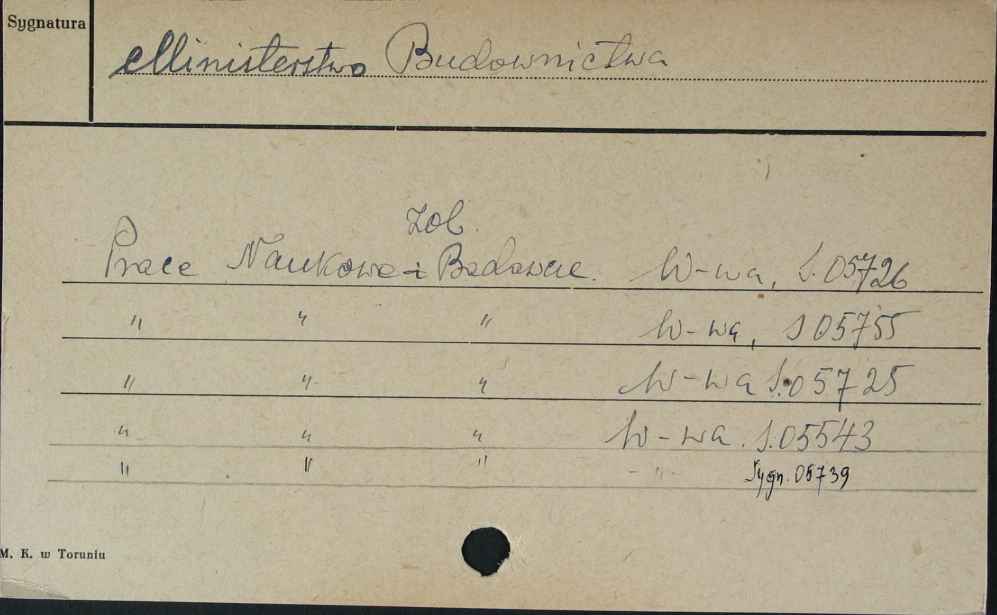 Sygnatura
Ministerstwo Budownictwa
zob.
Prace Naukowo-Badawcze. W-wa, S. 05726
" " " W-wa, S 05755
" " " W-wa S. 05725
" " " W-wa. S. 05543
" " " - " - Sygn. 05739
M. K. w Toruniu